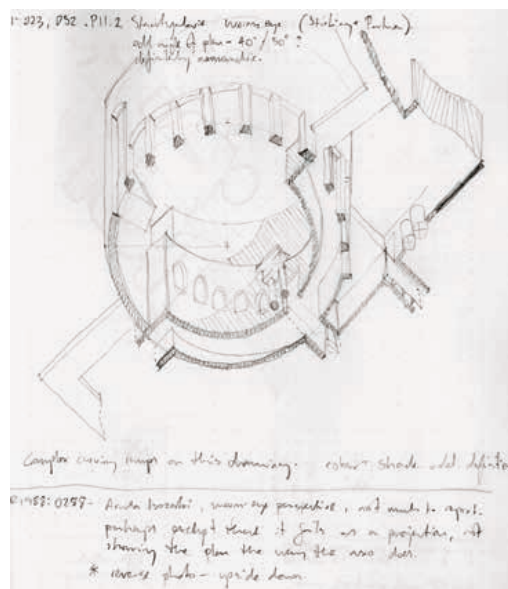 023, 032. P11.2 Staatsgalerie worms eye (Stirling + Partner).
odd angle of plan - 40° / 50° ?
definitely axonometric.
Complex curving ramps on this drawing. colour + shade add definition
1988:0258 - worms eye perspective, not much to report.
perhaps except that it fails as a projection, not
showing the plan the way the axo does.
* reverse photo - upside down.